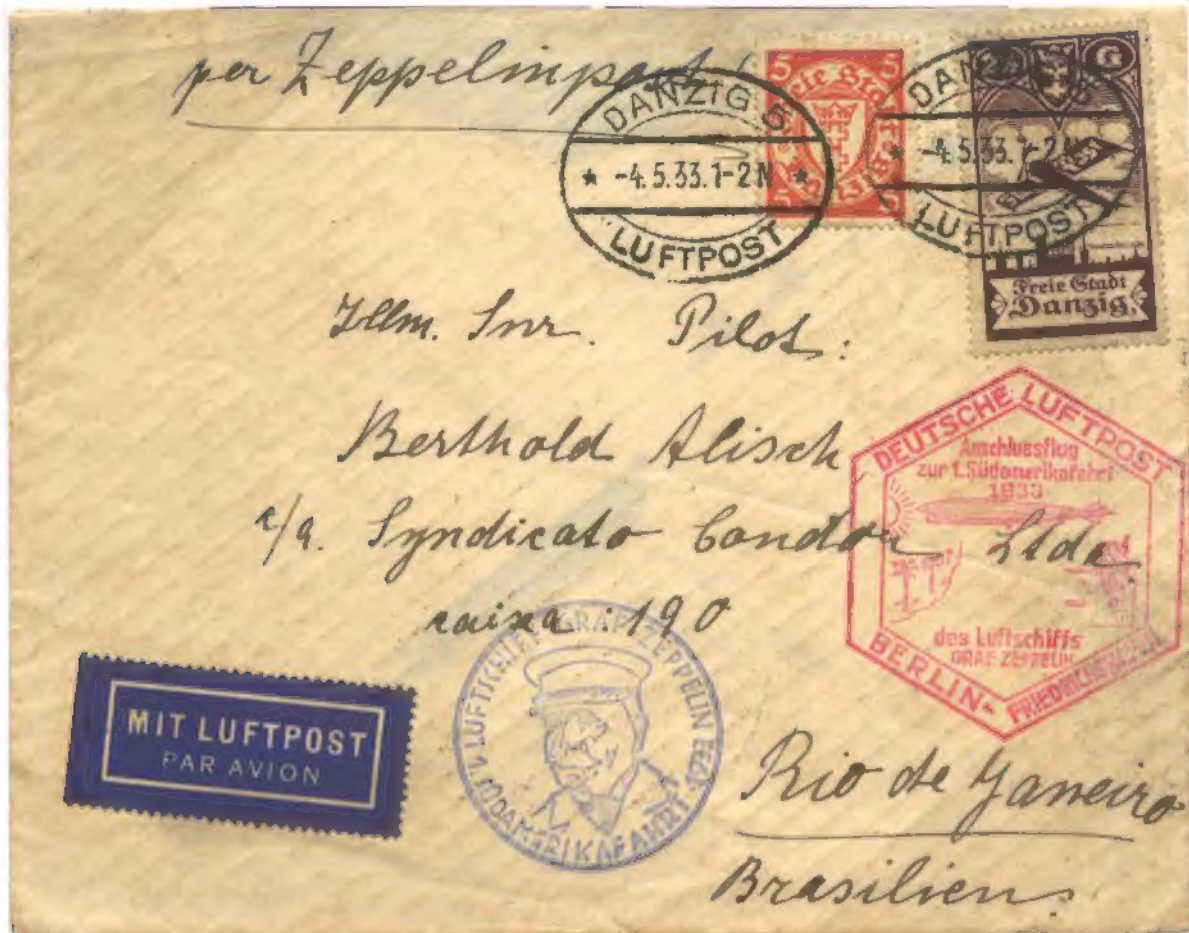 per Zeppelinpost
DANZIG 5
* -4.5.33.1-2N *
LUFTPOST
5 5
Freie Stadt
5 5
DANZIG 5
* -4.5.33.1-2N
LUFTPOST
G
Freie Stadt
Danzig
Illm. Snr. Pilot:
Berthold Alisch
c/a. Syndicato Condor Ltda.
caixa: 190
Rio de Janeiro
Brasilien.
DEUTSCHE LUFTPOST
Anschlussflug
zur 1. Südamerikafahrt
1933
des Luftschiffs
GRAF ZEPPELIN
BERLIN-FRIEDRICHSHAFEN
LUFTSCHIFF GRAF ZEPPELIN 1933
1. SÜDAMERIKAFAHRT
MIT LUFTPOST
PAR AVION